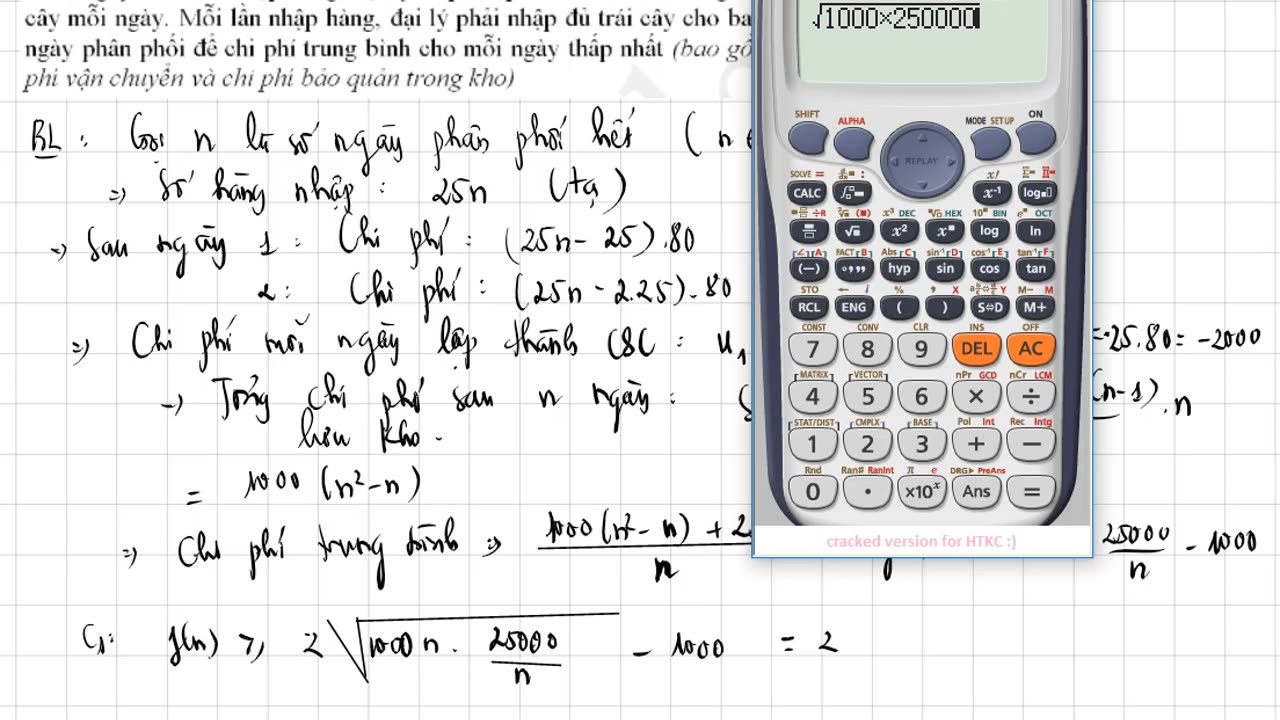 cây mỗi ngày. Mỗi lần nhập hàng, đại lý phải nhập đủ trái cây cho ba
ngày phân phối để chi phí trung bình cho mỗi ngày thấp nhất (bao gồ
phí vận chuyển và chi phí bảo quản trong kho)
BL : Gọi n là số ngày phân phối hết ( n ∈
⇒ Số hàng nhập : 25n (tạ)
→ Sau ngày 1 : Chi phí : (25n - 25) .80
2 : Chi phí : (25n - 2.25) .80
⇒ Chi phí mỗi ngày lập thành CSC : u₁ = -25.80 = -2000
→ Tổng chi phí sau n ngày : S (n-1) .n
lưu kho.
= 1000 (n² - n)
⇒ Chi phí trung bình ⇒ 1000 (n² - n) + 2
n
25000
n
- 1000
C₁: f(n) ≥ 2 √ 1000 n . 25000
n
- 1000 = 2
√1000×250000
SHIFT ALPHA MODE SETUP ON
REPLAY
SOLVE = x!
CALC x⁻¹ log
÷R x³ DEC HEX BIN OCT
√ x² log ln
FACT [B] Abs [C] sin⁻¹ [D] cos⁻¹ [E] tan⁻¹ [F]
(−) hyp sin cos tan
STO % , X Y M− M
RCL ENG ( ) S⇔D M+
CONST CONV CLR INS OFF
7 8 9 DEL AC
MATRIX VECTOR nPr GCD nCr LCM
4 5 6 × ÷
STAT/DIST CMPLX BASE Pol Int Rec Intg
1 2 3 + −
Rnd Ran# RanInt π e DRG▸ PreAns
0 . ×10ˣ Ans =
cracked version for HTKC :)